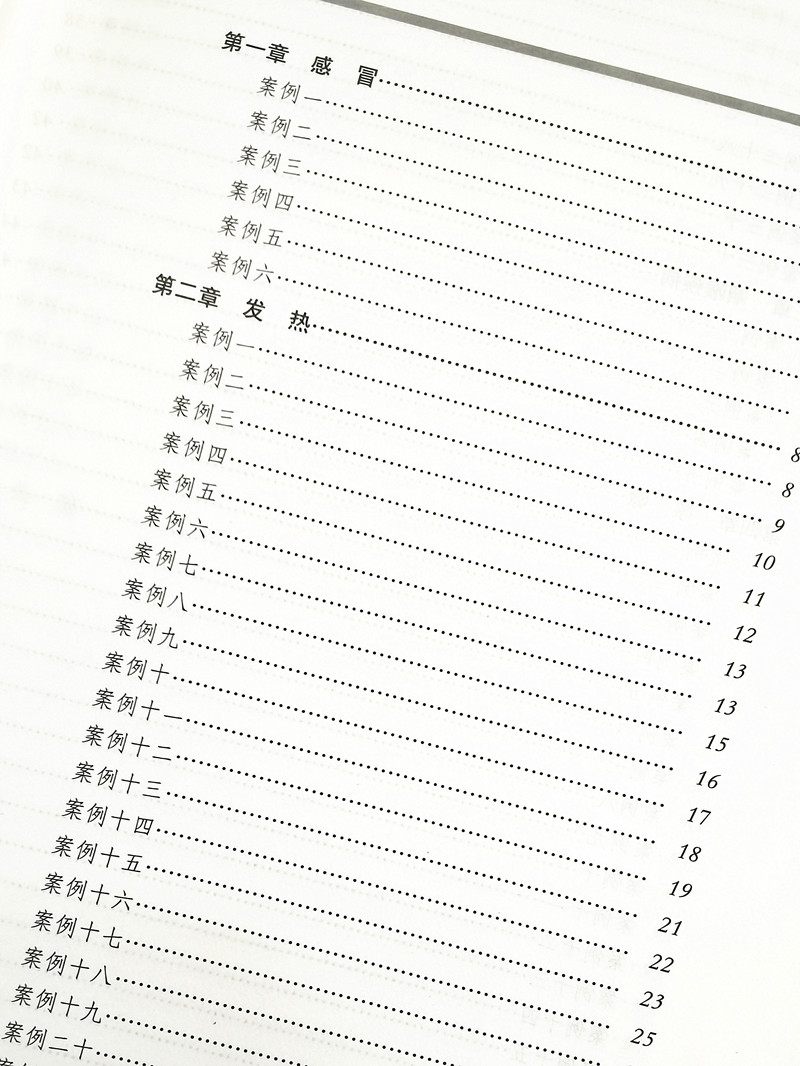 第一章 感 冒……
案例一……
案例二……
案例三……
案例四……
案例五……
案例六……
第二章 发 热……8
案例一……8
案例二……9
案例三……10
案例四……11
案例五……12
案例六……13
案例七……13
案例八……15
案例九……16
案例十……17
案例十一……18
案例十二……19
案例十三……21
案例十四……22
案例十五……23
案例十六……25
案例十七……
案例十八……
案例十九……
案例二十……